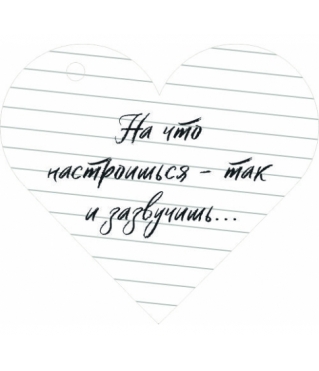 На что
настроишься - так
и зазвучишь...